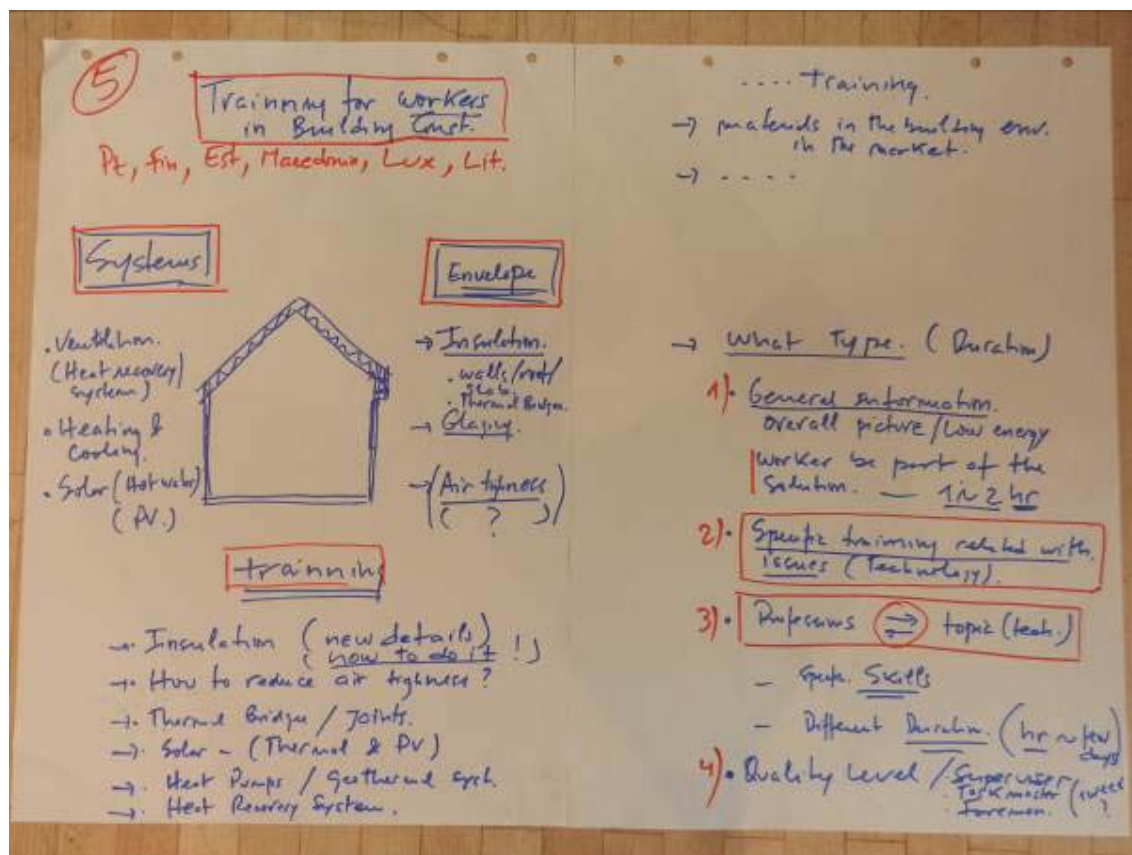 5
Trainning for workers
in Building Const.
Pt, Fin, Est, Macedonia, Lux, Lit.
Systems
• Ventilation.
(Heat recovery
system)
• Heating &
Cooling.
• Solar (Hot water)
(PV.)
Envelope
→ Insulation.
• walls/roof/
slab.
• Thermal Bridges.
→ Glazing.
→ (Air tighness)
( ? )
trainning
→ Insulation (new details)
(how to do it !)
→ How to reduce air tighness?
→ Thermal Bridges / Joints.
→ Solar - (Thermal & PV)
→ Heat Pumps / Geothermal syst.
→ Heat Recovery System.
.... Training.
→ materials in the building env.
in the market.
→ ....
→ What Type. (Duration)
1) • General information.
overall picture / Low energy
worker be part of the
solution. — 1 ~ 2 hr
2) • Specific training related with.
issues (Technology).
3) • Professions ⇄ topic (tech.)
- Specific Skills
- Different Duration. (hr ~ few
days)
4) • Quality Level / Supervisor
Taskmaster (1 week
• Foreman. ?